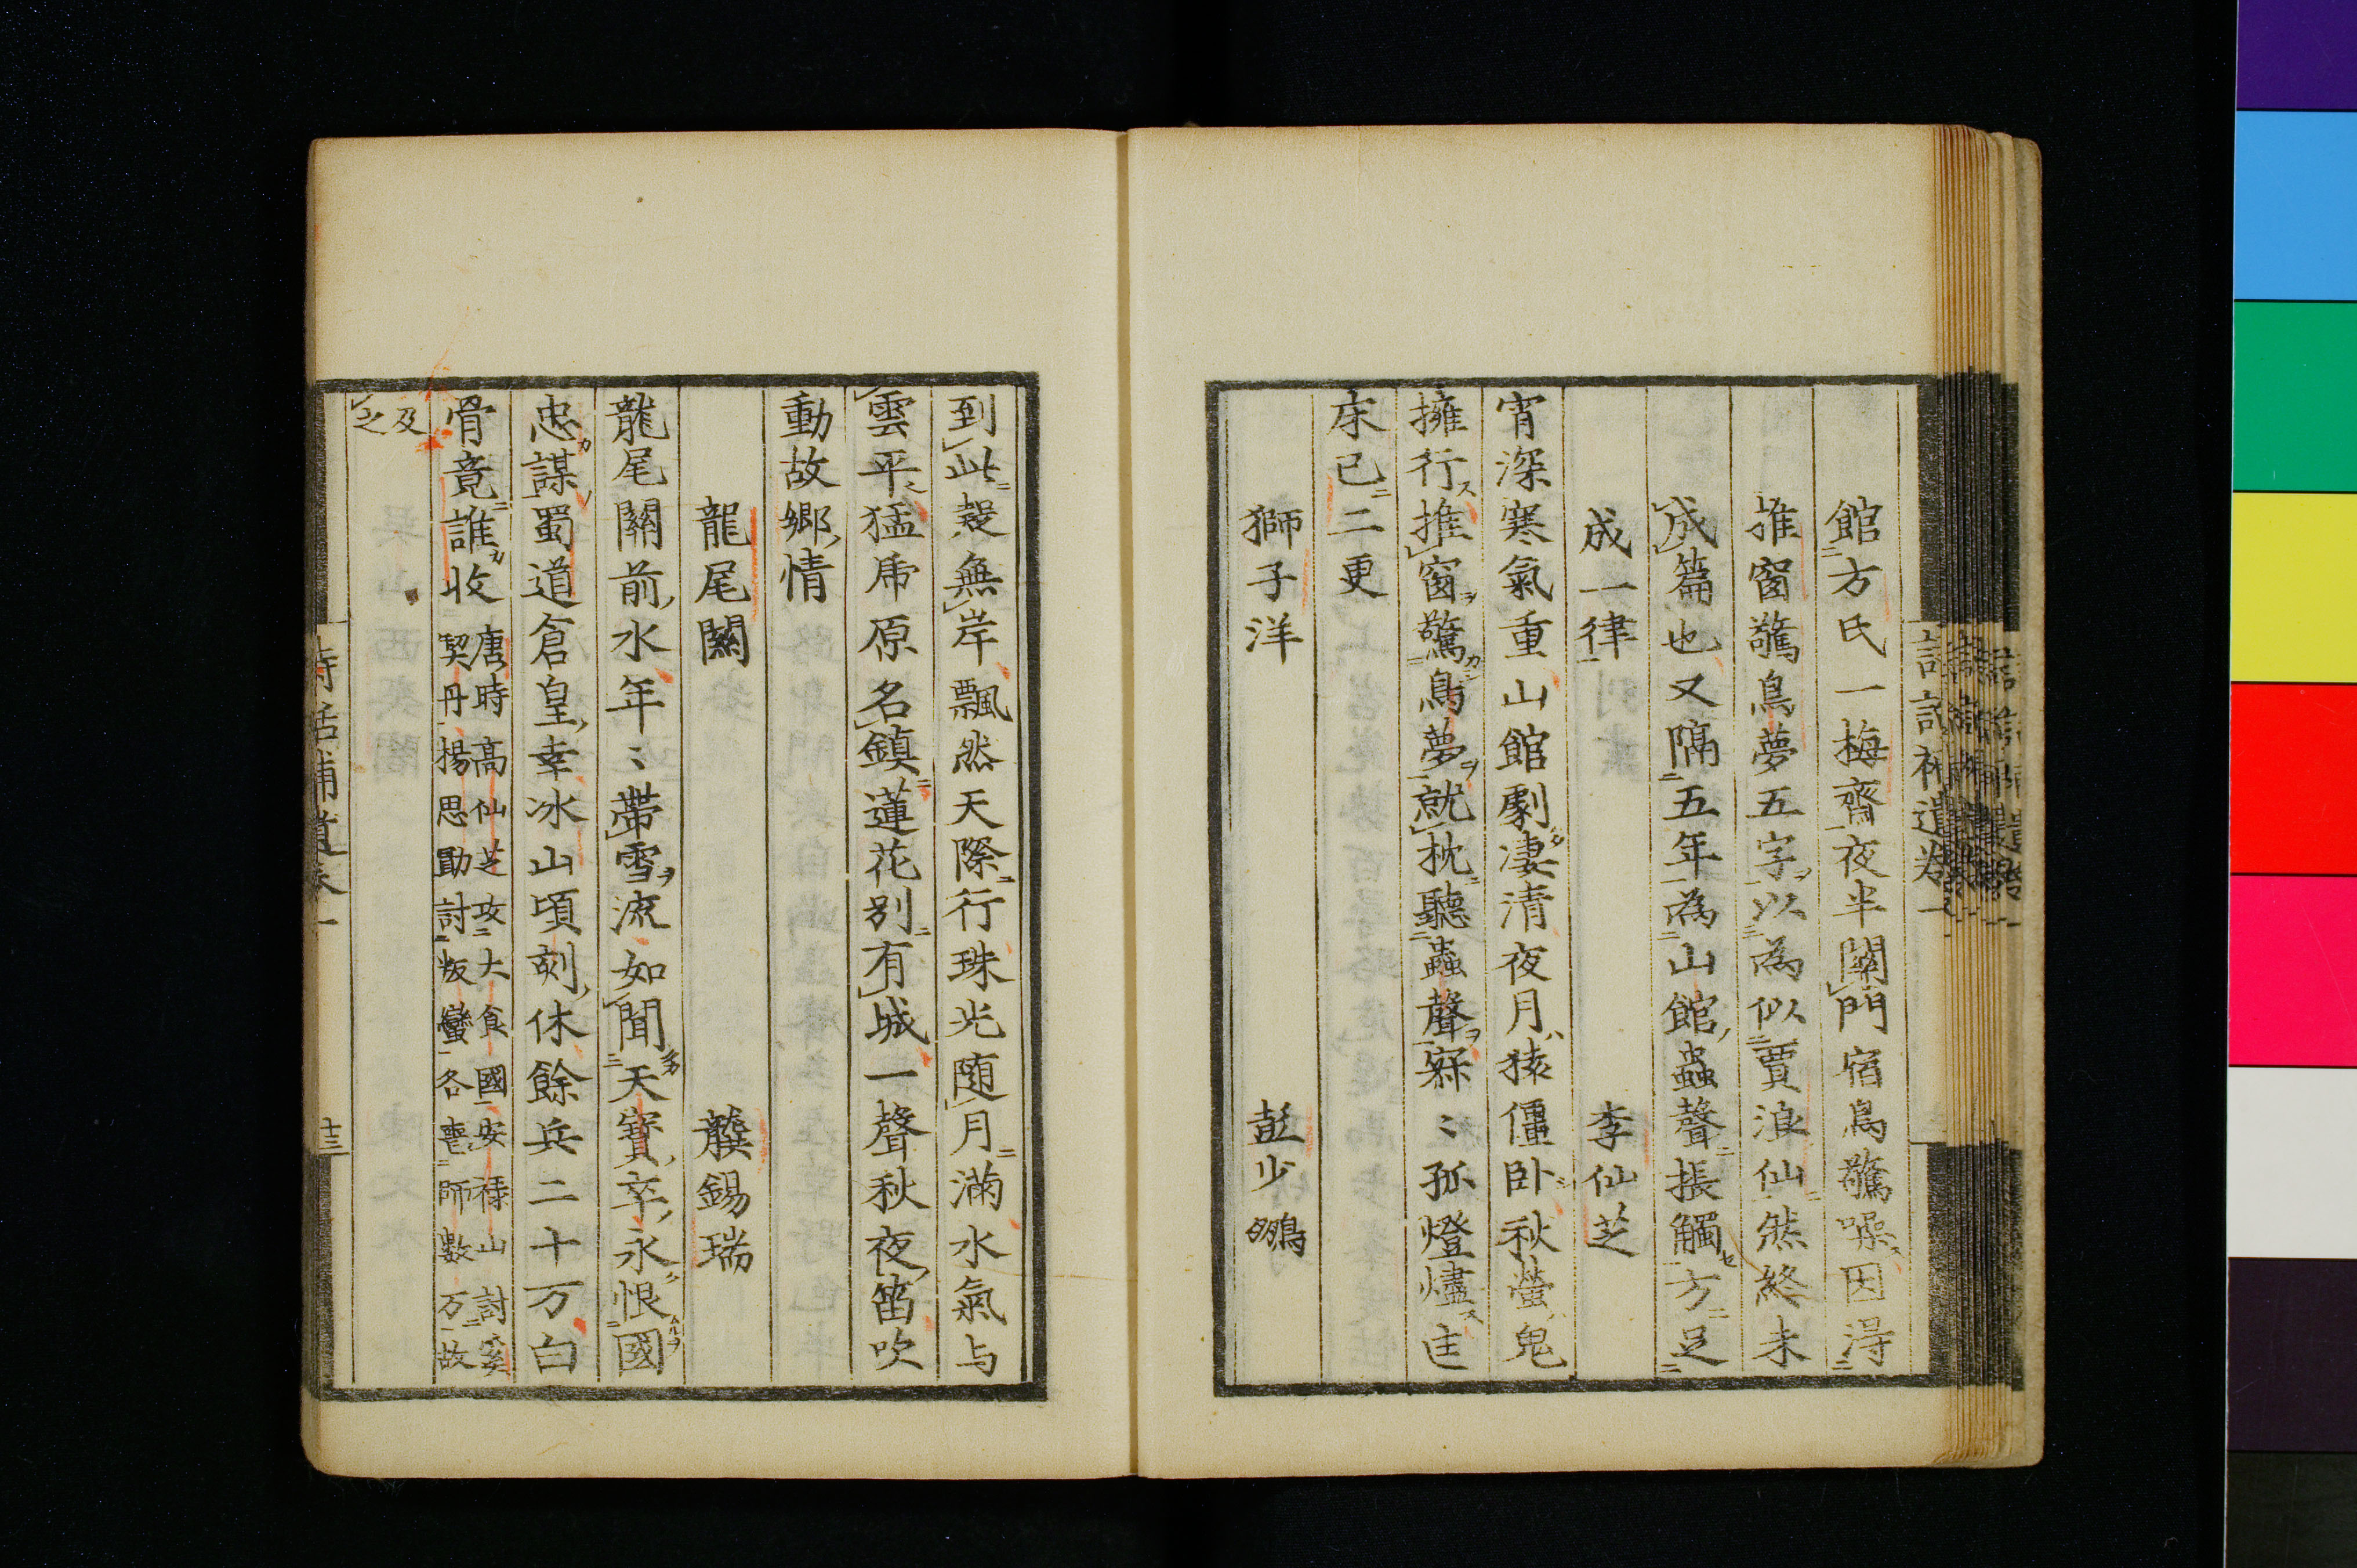 館方氏一梅齋夜半関門宿鳥驚噪因得
推窗驚鳥夢五字以為似賈浪仙然終未
成篇也又隔五年為山館蟲聲掁觸方足
成一律　李仙芝
宵深寒氣重山館劇凄清夜月猿僵卧秋螢鬼
擁行推窗驚鳥夢就枕聽蟲聲寂〻孤燈燼
床已二更
獅子洋　彭少鵬
到此疑無岸飄然天際行珠光随月滿水氣与
雲平猛虎原名鎮蓮花別有城一聲秋夜笛吹
動故郷情
龍尾關　龔錫瑞
龍尾關前水年〻帶雪流如聞天寶卒永恨國
忠謀蜀道倉皇幸冰山頃刻休餘兵二十万白
骨竟誰收
唐時高仙芝攻大食國安祿山討奚
契丹揚思勖討叛蠻各喪師数万故
及
之
詩話補遺卷一
十三